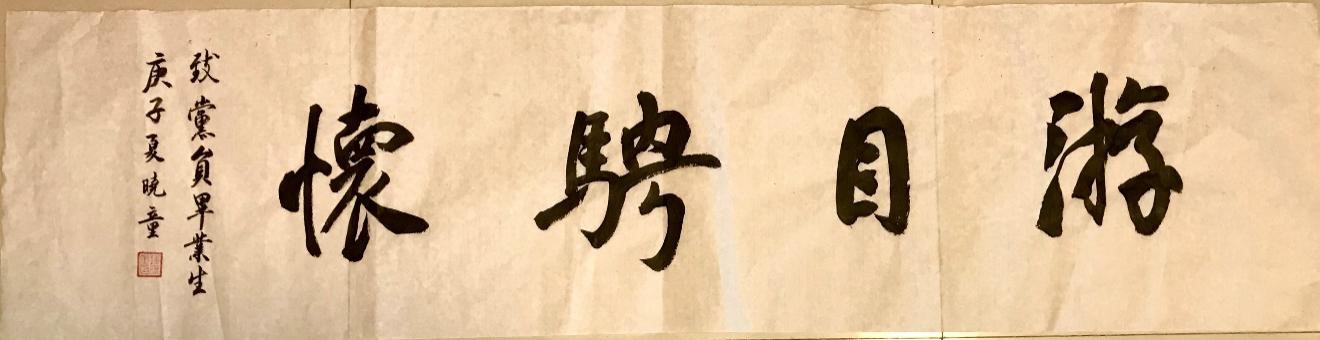 游目騁懷
致黨員畢業生
庚子夏曉童